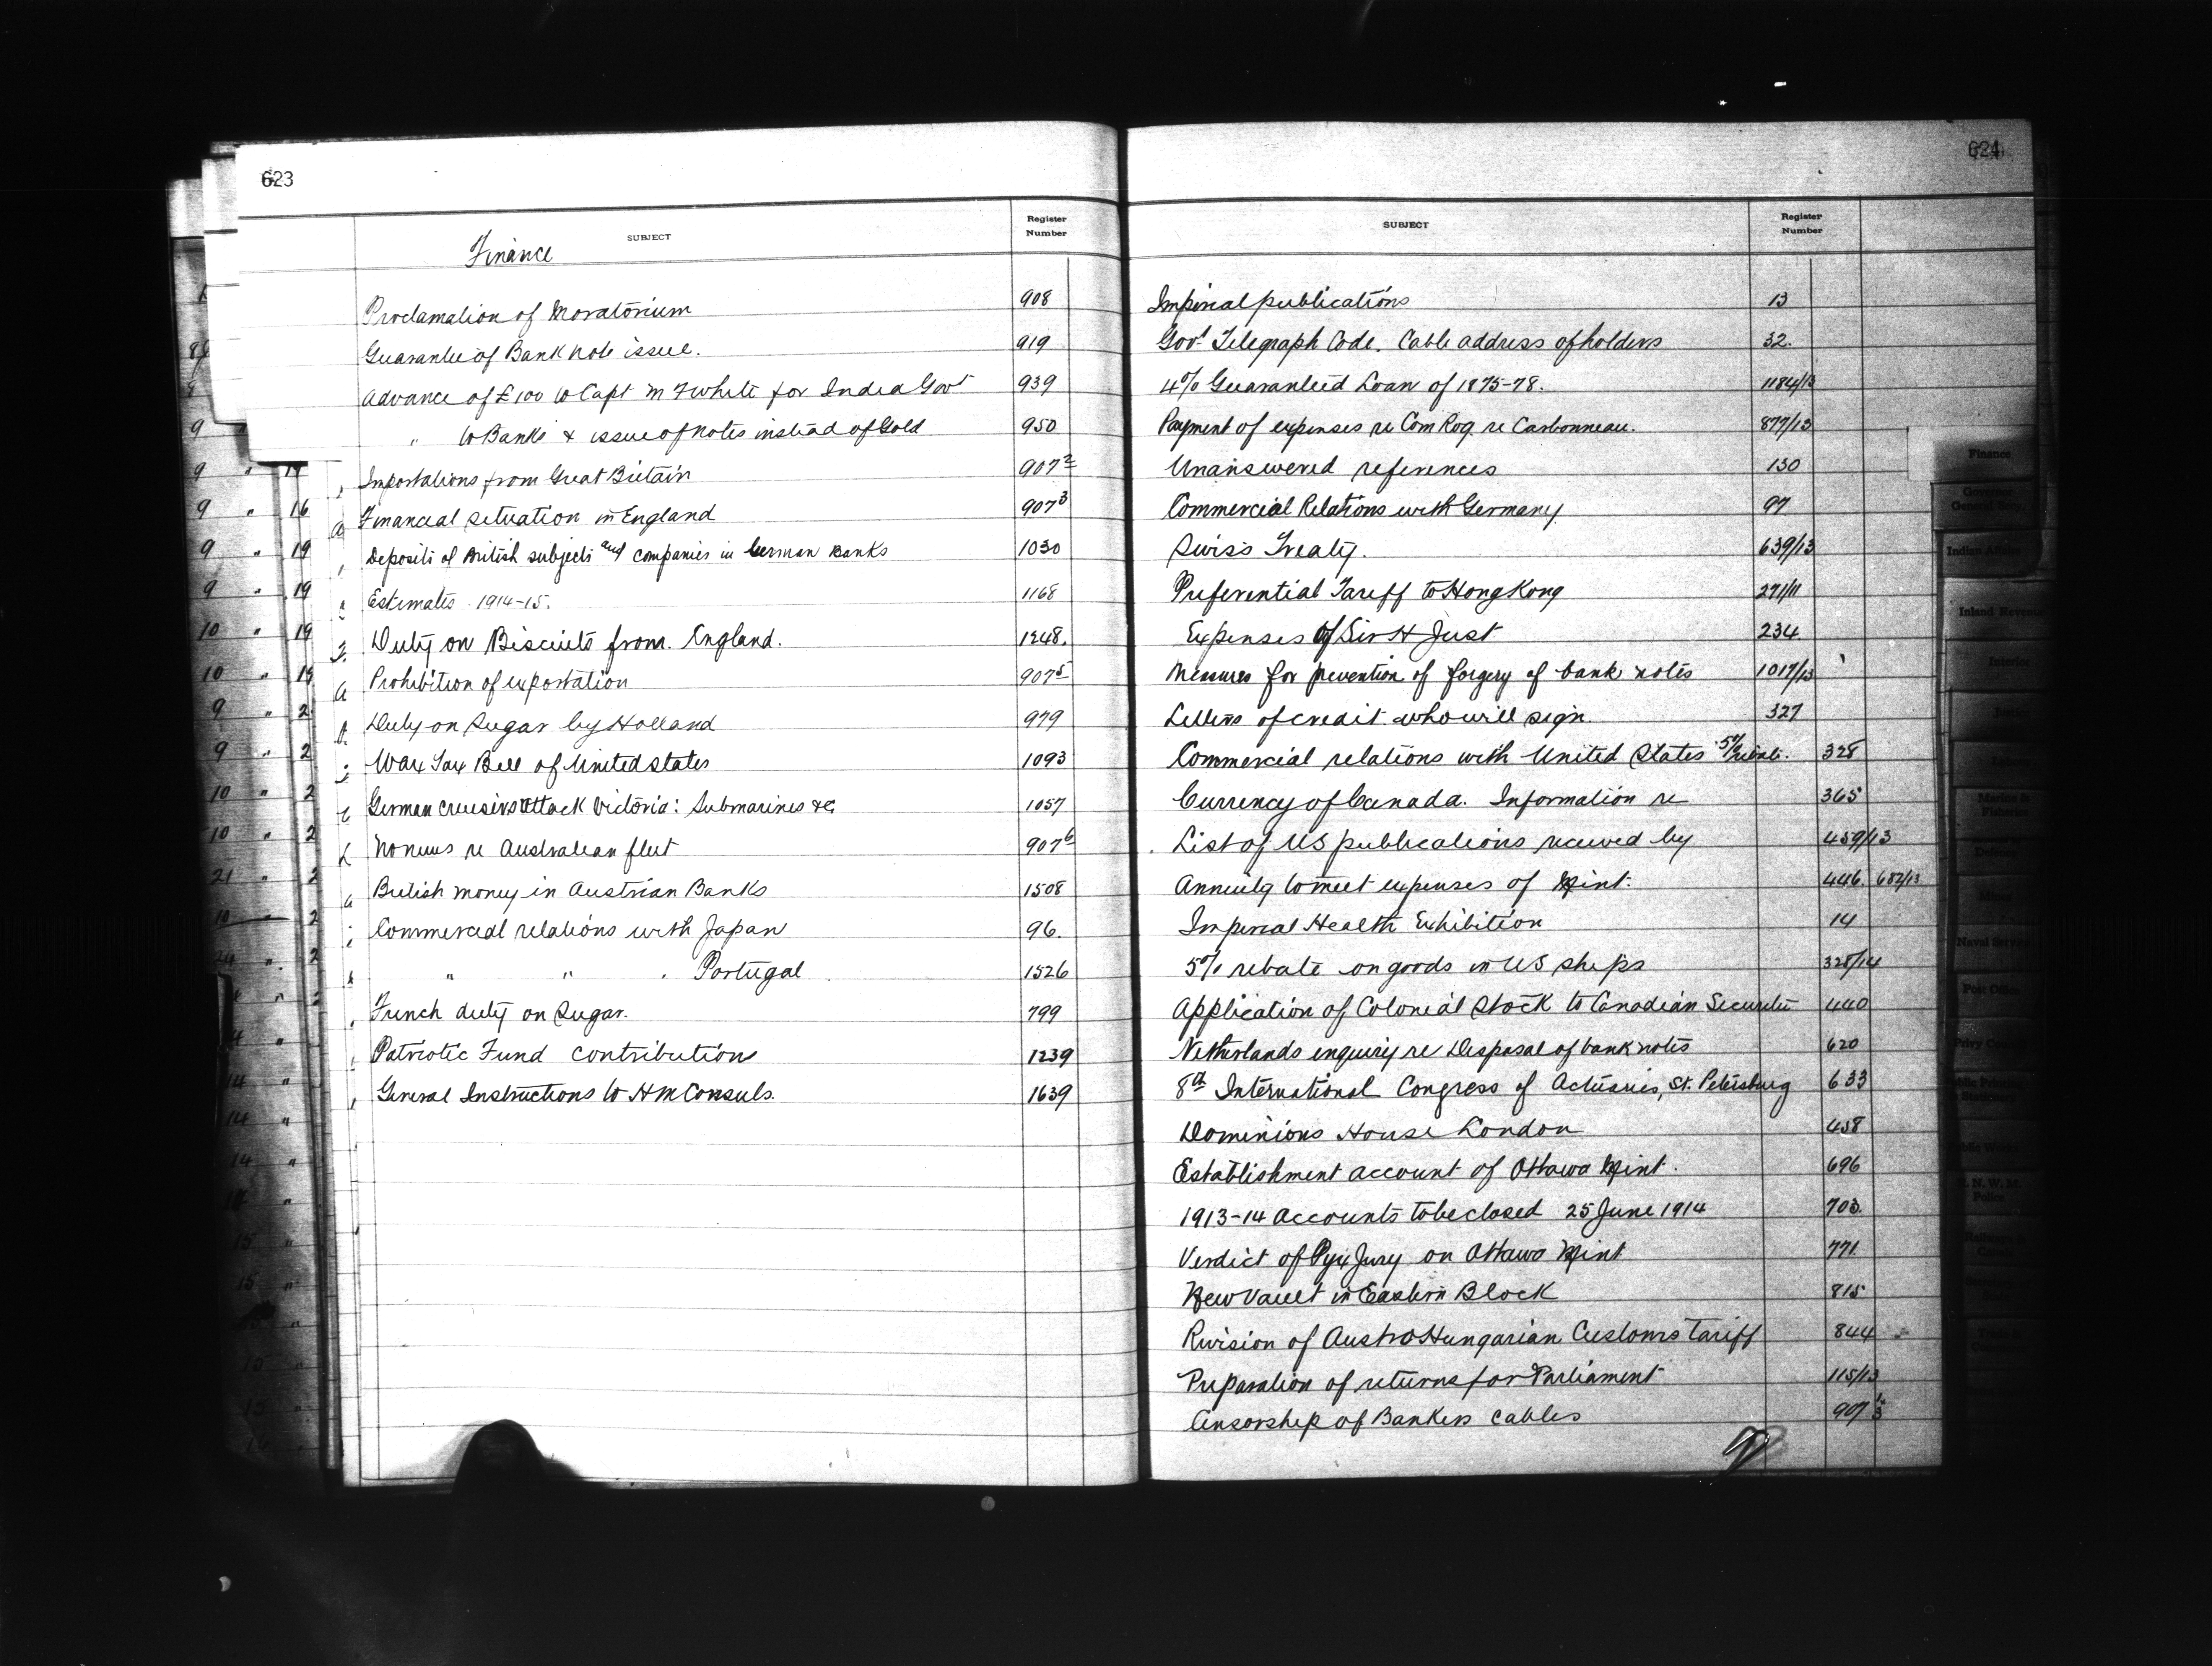 623
SUBJECT
Register
Number
Finance
Proclamation of Moratorium 908
Guarantee of Bank note issue. 919
Advance of £100 to Capt M F White for India Govt 939
" to Banks & issue of notes instead of Gold 950
Importations from Great Britain 907²
Financial situation in England 907³
Deposits of British subjects and companies in German Banks 1030
Estimates 1914-15. 1168
Duty on Biscuits from England. 1248.
Prohibition of exportation 907⁵
Duty on Sugar by Holland 979
War Tax Bill of United States 1093
German cruisers attack Victoria: Submarines &c 1057
No news re Australian fleet 907⁶
British money in Austrian Banks 1508
Commercial relations with Japan 96.
" " " Portugal 1526
French duty on Sugar. 799
Patriotic Fund contribution 1239
General Instructions to HM Consuls. 1639
624
SUBJECT
Register
Number
Imperial publications 13
Govt Telegraph Code. Cable address of holders 32.
4% Guaranteed Loan of 1875-78. 1184/13
Payment of expenses re Com Rog. re Carbonneau. 877/13
Unanswered references 130
Commercial Relations with Germany 97
Swiss Treaty. 639/13
Preferential Tariff to Hong Kong 271/11
Expenses of Sir H Just 234
Measures for prevention of forgery of bank notes 1017/13
Letters of credit who will sign. 327
Commercial relations with United States 5% rebate. 328
Currency of Canada. Information re 365
List of US publications received by 459/13
Annuity to meet expenses of Mint. 446. 682/13
Imperial Health Exhibition 14
5% rebate on goods in US ships 328/14
Application of Colonial Stock to Canadian Securities 440
Netherlands enquiry re Disposal of bank notes 620
8th International Congress of Actuaries, St. Petersburg 633
Dominions House London 458
Establishment account of Ottawa Mint. 696
1913-14 Accounts to be closed 25 June 1914 703.
Verdict of Pyx Jury on Ottawa Mint 771.
New Vault in Eastern Block 815
Revision of Austro Hungarian Customs Tariff 844
Preparation of returns for Parliament 115/13
Censorship of Bankers cables 907
Finance
Governor
General Secy
Indian Affairs
Inland Revenue
Interior
Justice
Labour
Marine &
Fisheries
Defence
Mines
Naval Service
Post Office